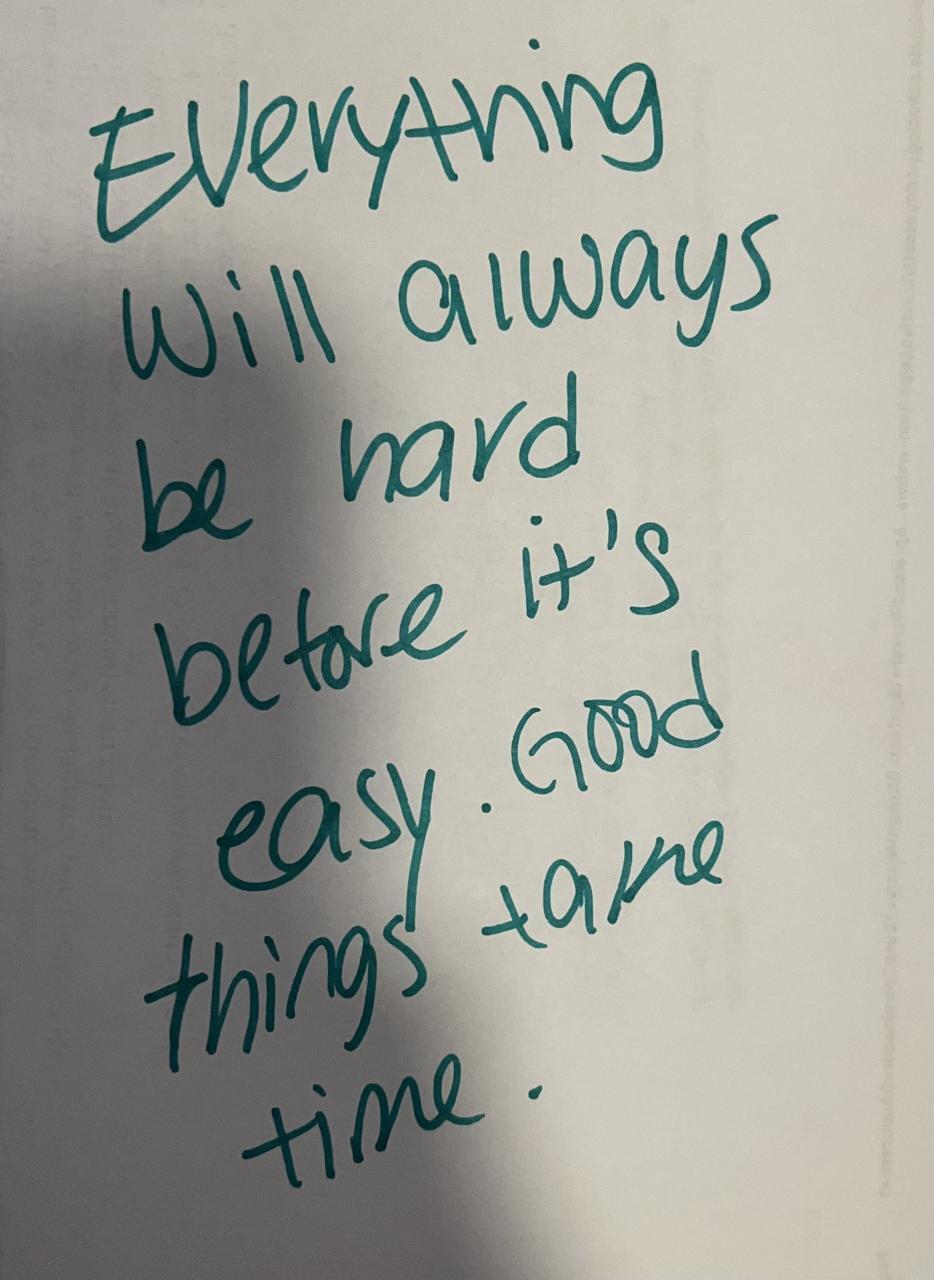 Everything
will always
be hard
before it's
easy. Good
things take
time.